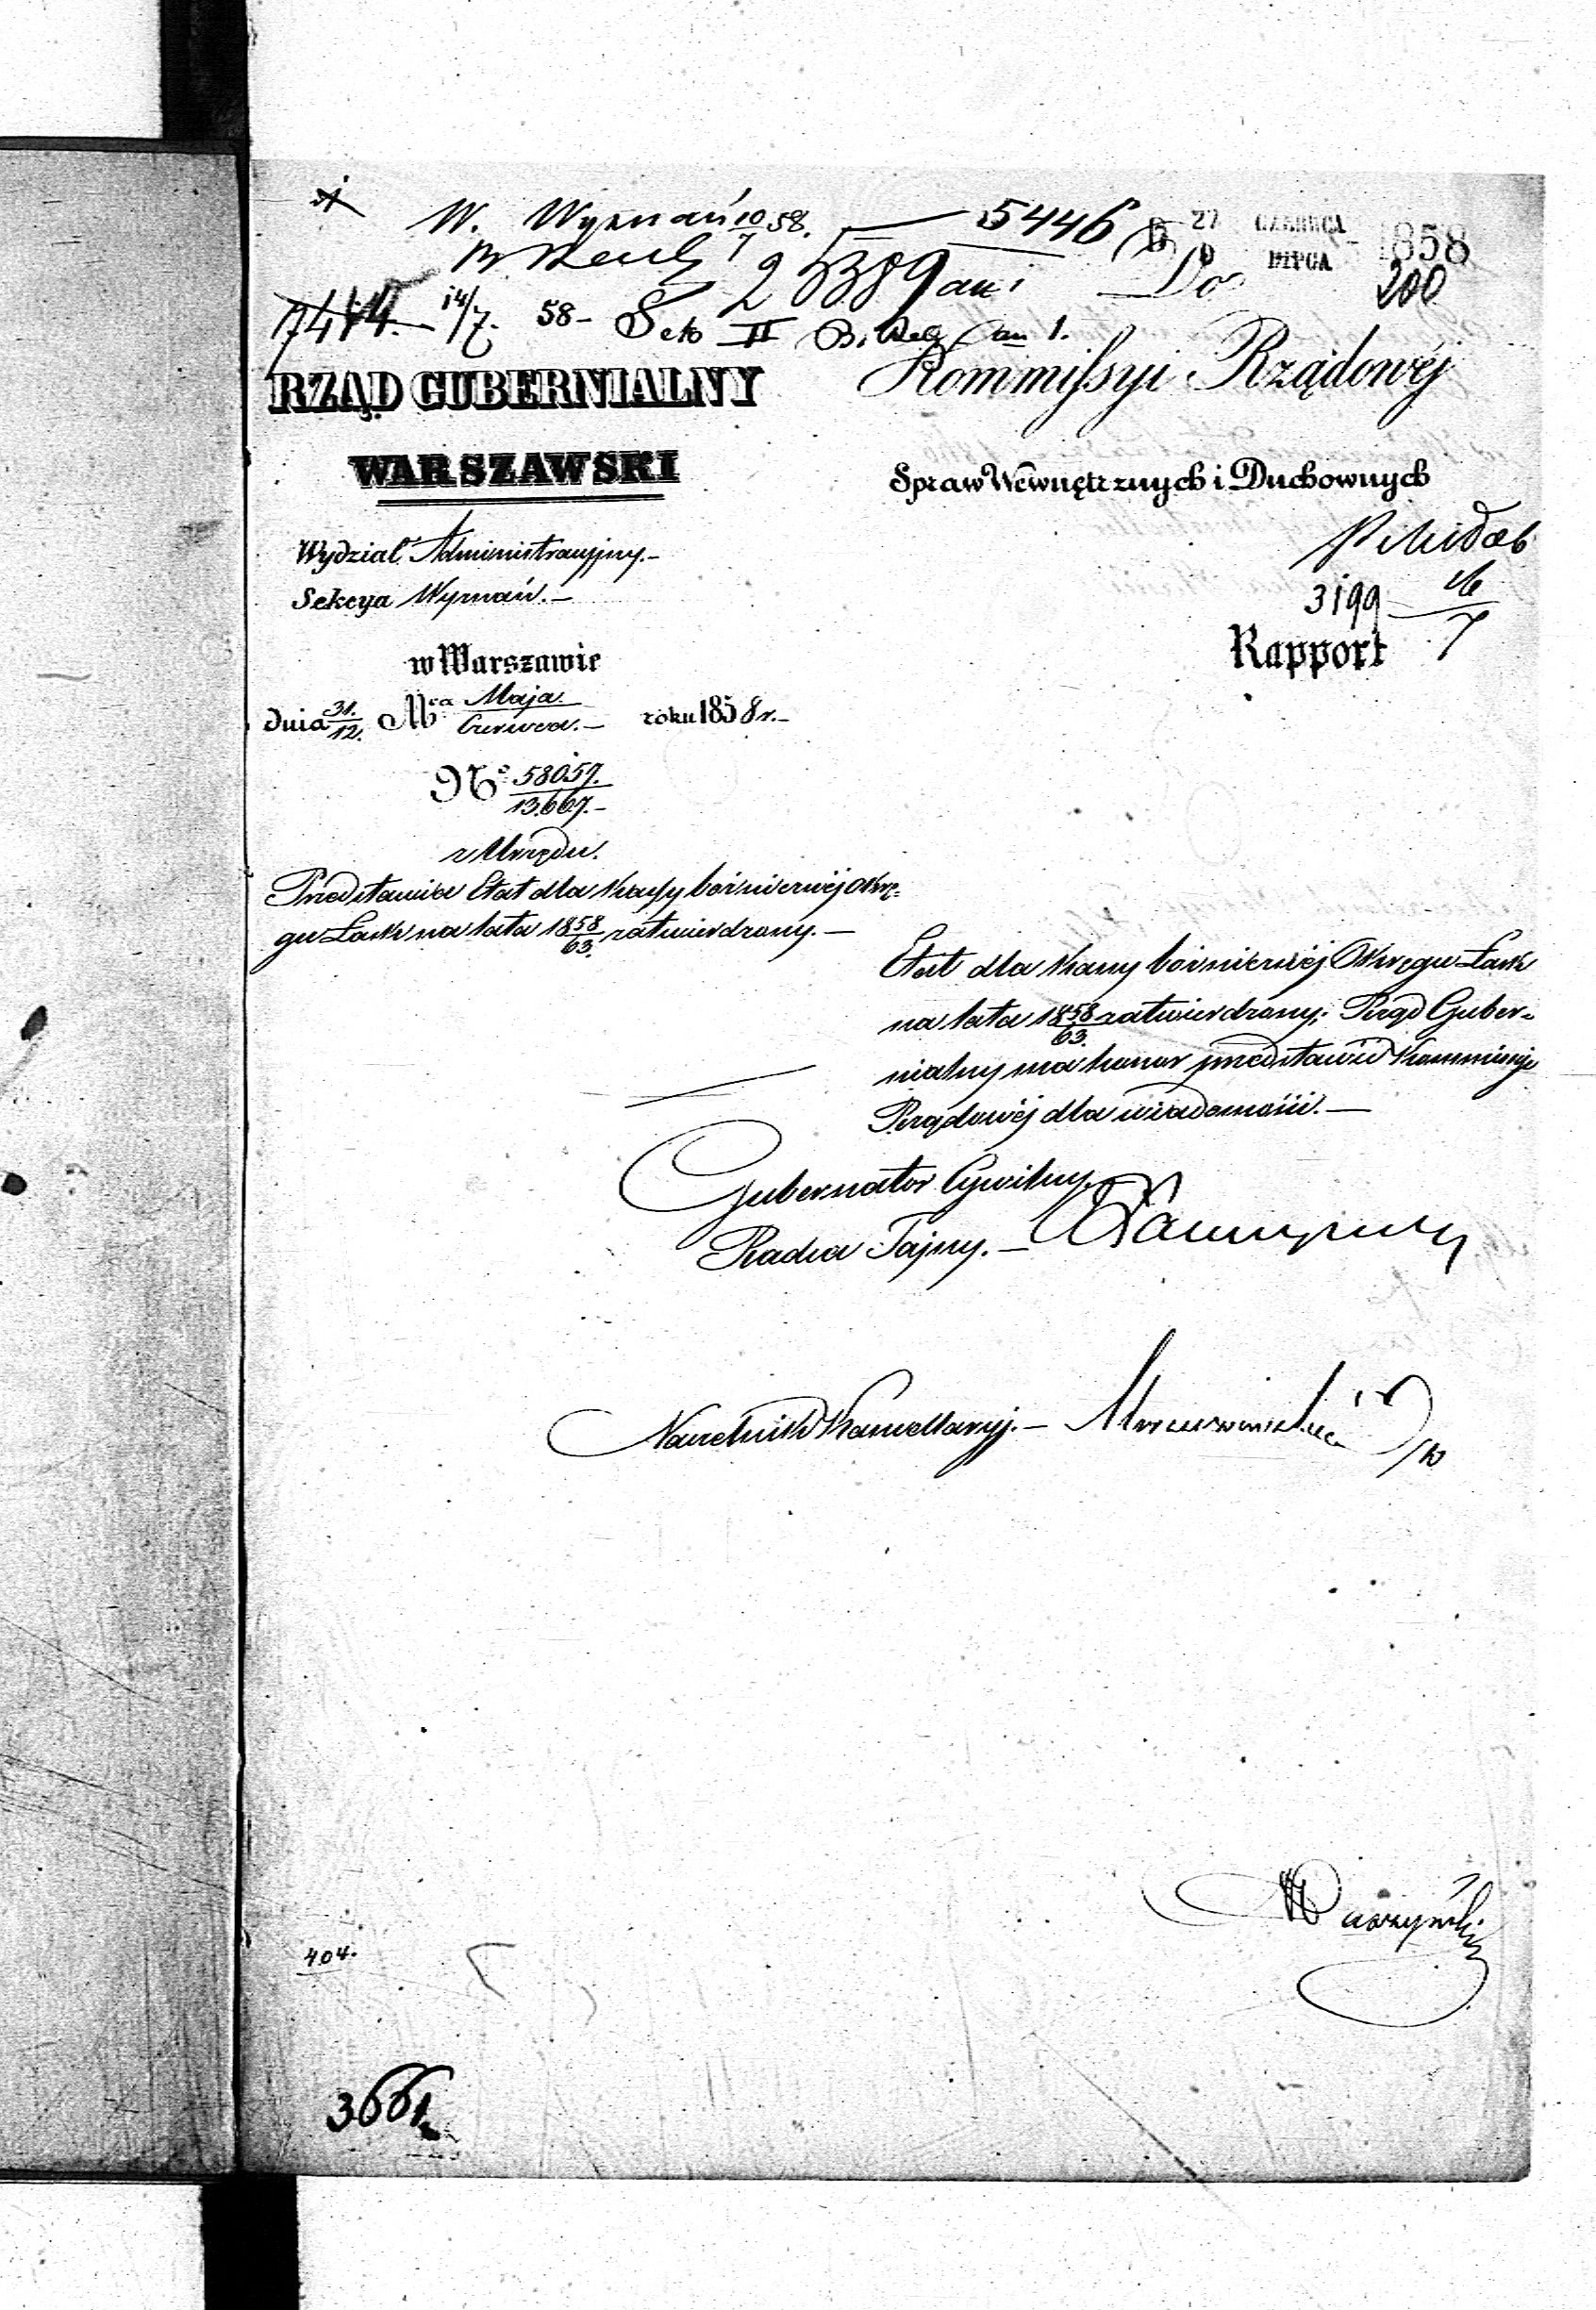 W. Wyznań 10/7 58. — 5446
27 CZERWCA
9 LIPCA 1858
2389 Do 200
7414. 14/7. 58 – Sek II
RZĄD GUBERNIALNY
WARSZAWSKI
Kommissyi Rządowéj
Spraw Wewnętrznych i Duchownych
Wydział Administracyjny. –
Sekcya Wyznań. –
3199 16/7
Rapport
w Warszawie
dnia 31./12. Mca Maja./Czerwca. – roku 1858 r. –
No 58057./13.667. –
z Urzędu.
Przedstawia Etat dla Kassy bożniczéj Okrę-
gu Łask na lata 1858/63. zatwierdzony. –
Etat dla Kassy bożniczéj Okręgu Łask
na lata 1858/63. zatwierdzony; Rząd Guber-
nialny ma honor przedstawić Kommissyi
Rządowéj dla wiadomości. –
Gubernator Cywilny,
Radca Tajny. –
Naczelnik Kancellaryi. –
404.
3661